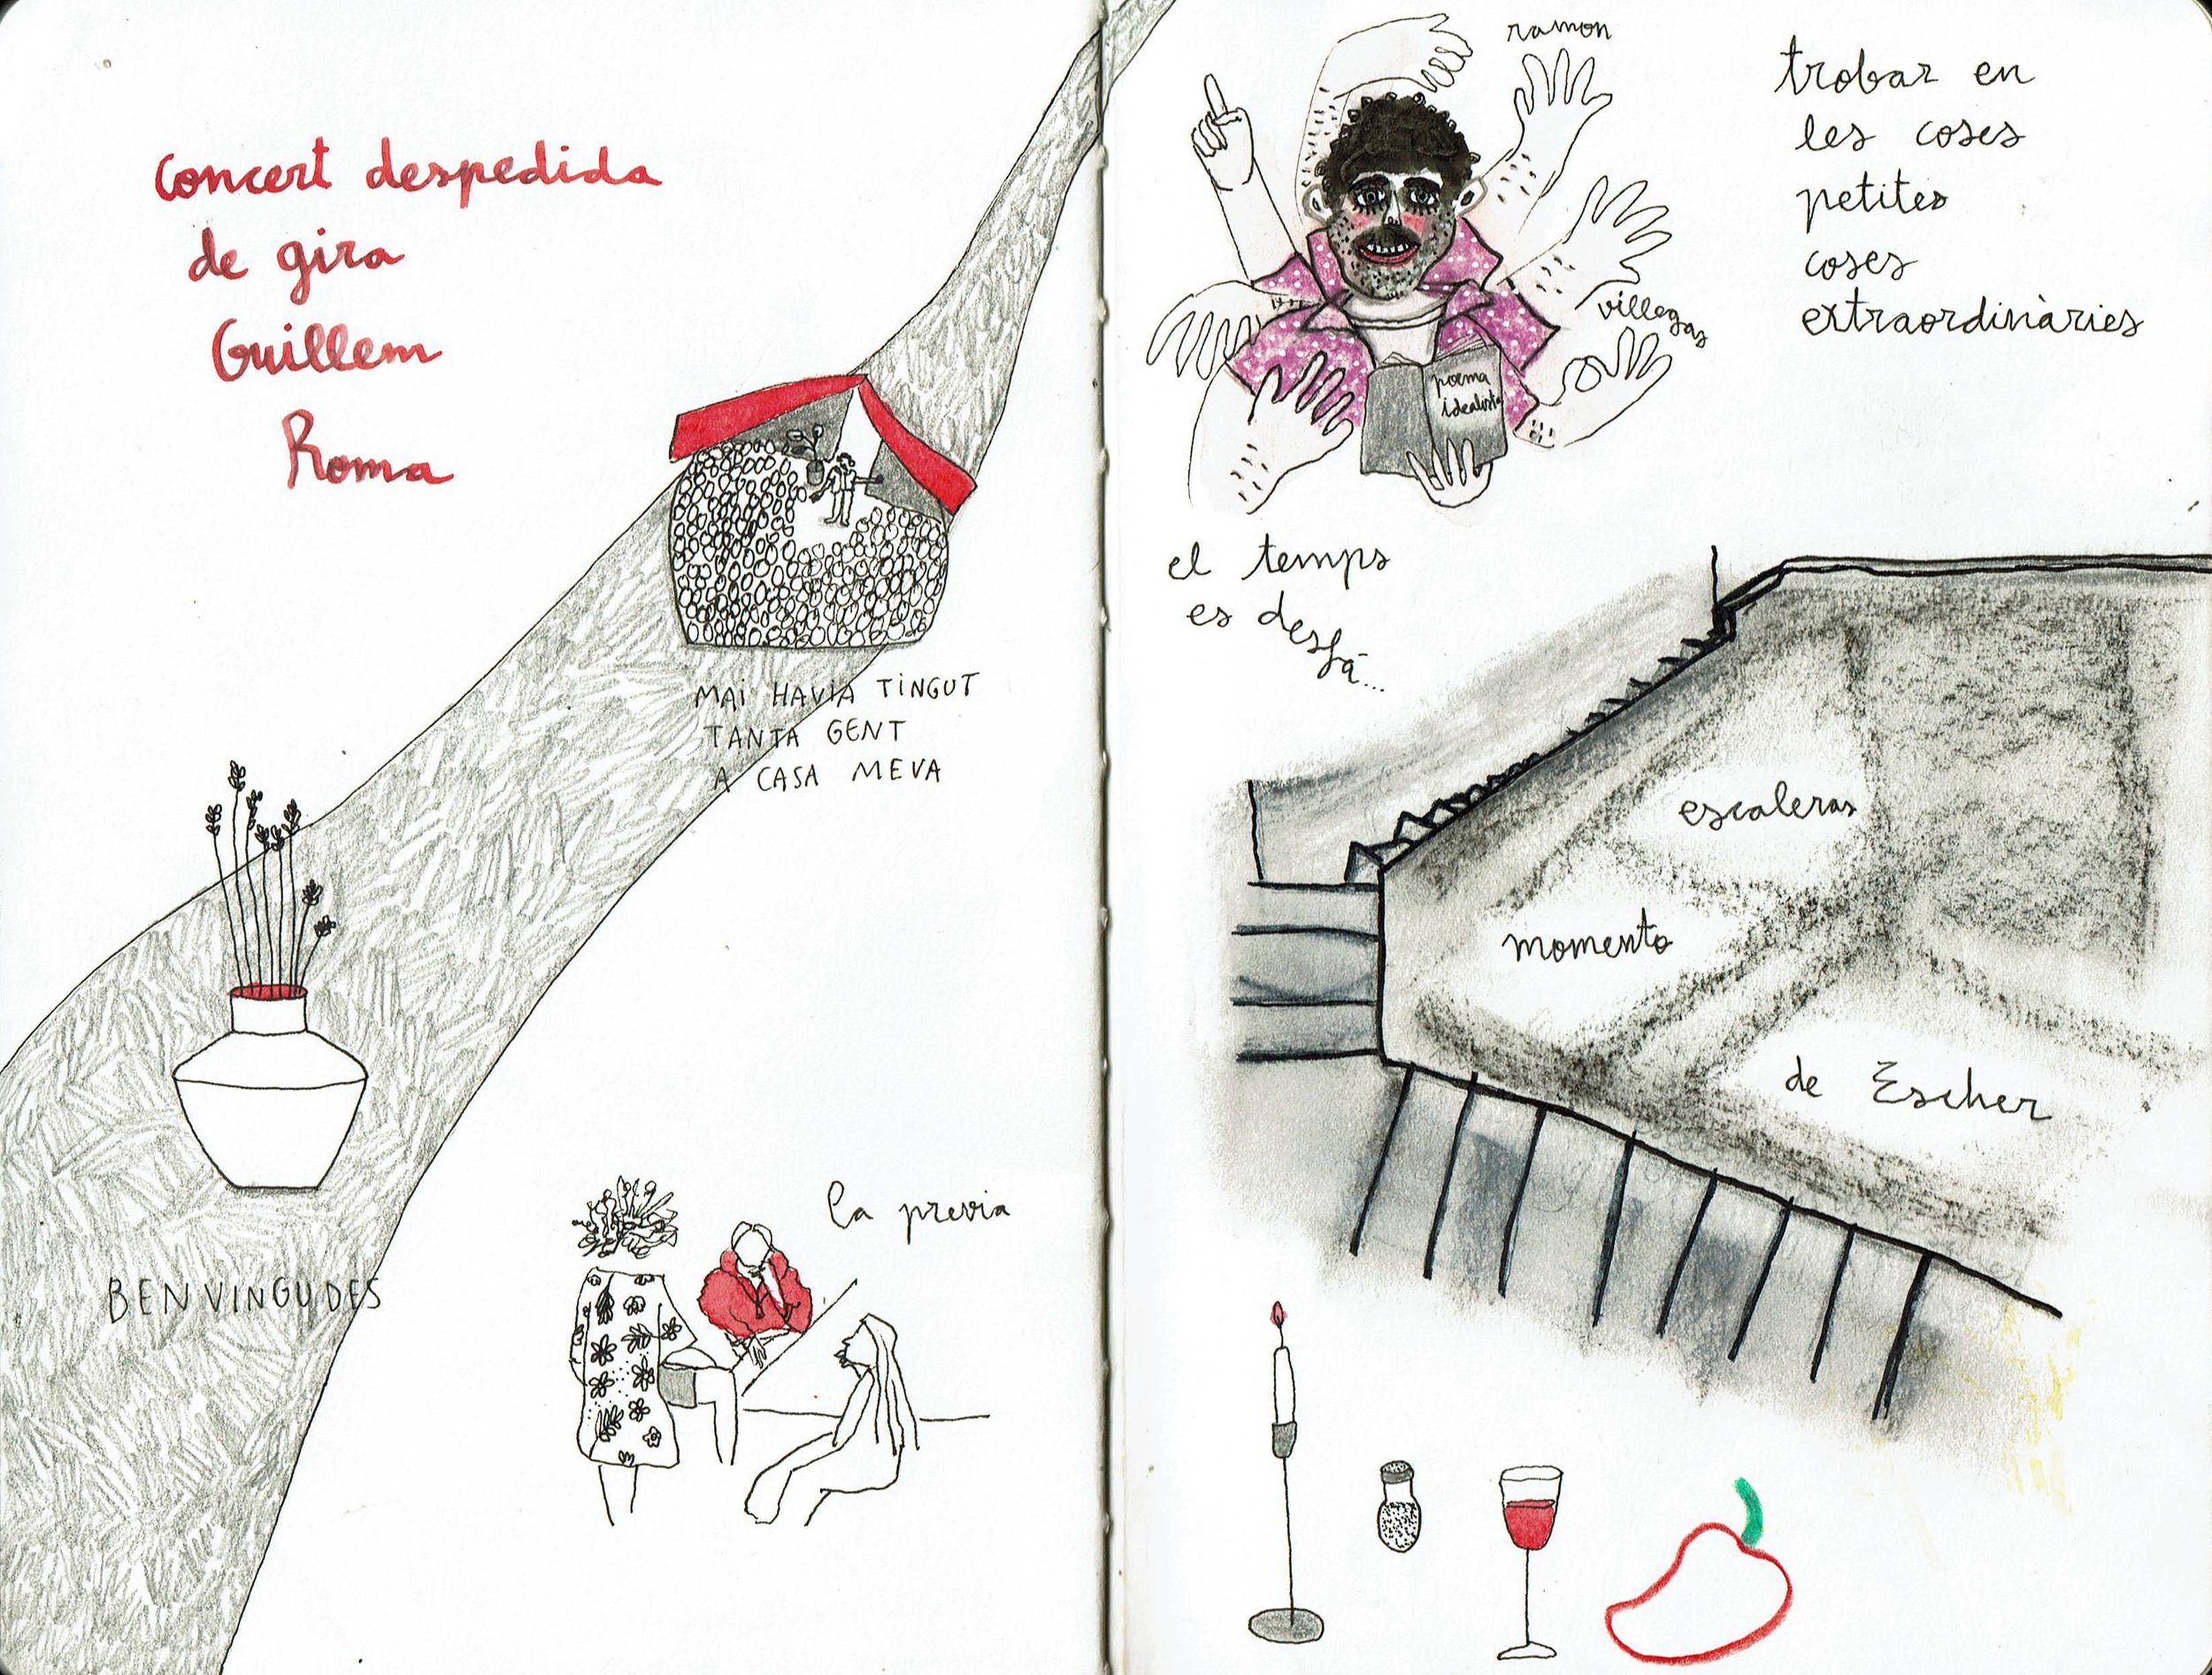 Concert despedida
de gira
Guillem
Roma
MAI HAVIA TINGUT
TANTA GENT
A CASA MEVA
BENVINGUDES
la previa
ramon
villegas
poema
idealista
trobar en
les coses
petites
coses
extraordinàries
el temps
es desfà...
escaleras
momento
de Escher